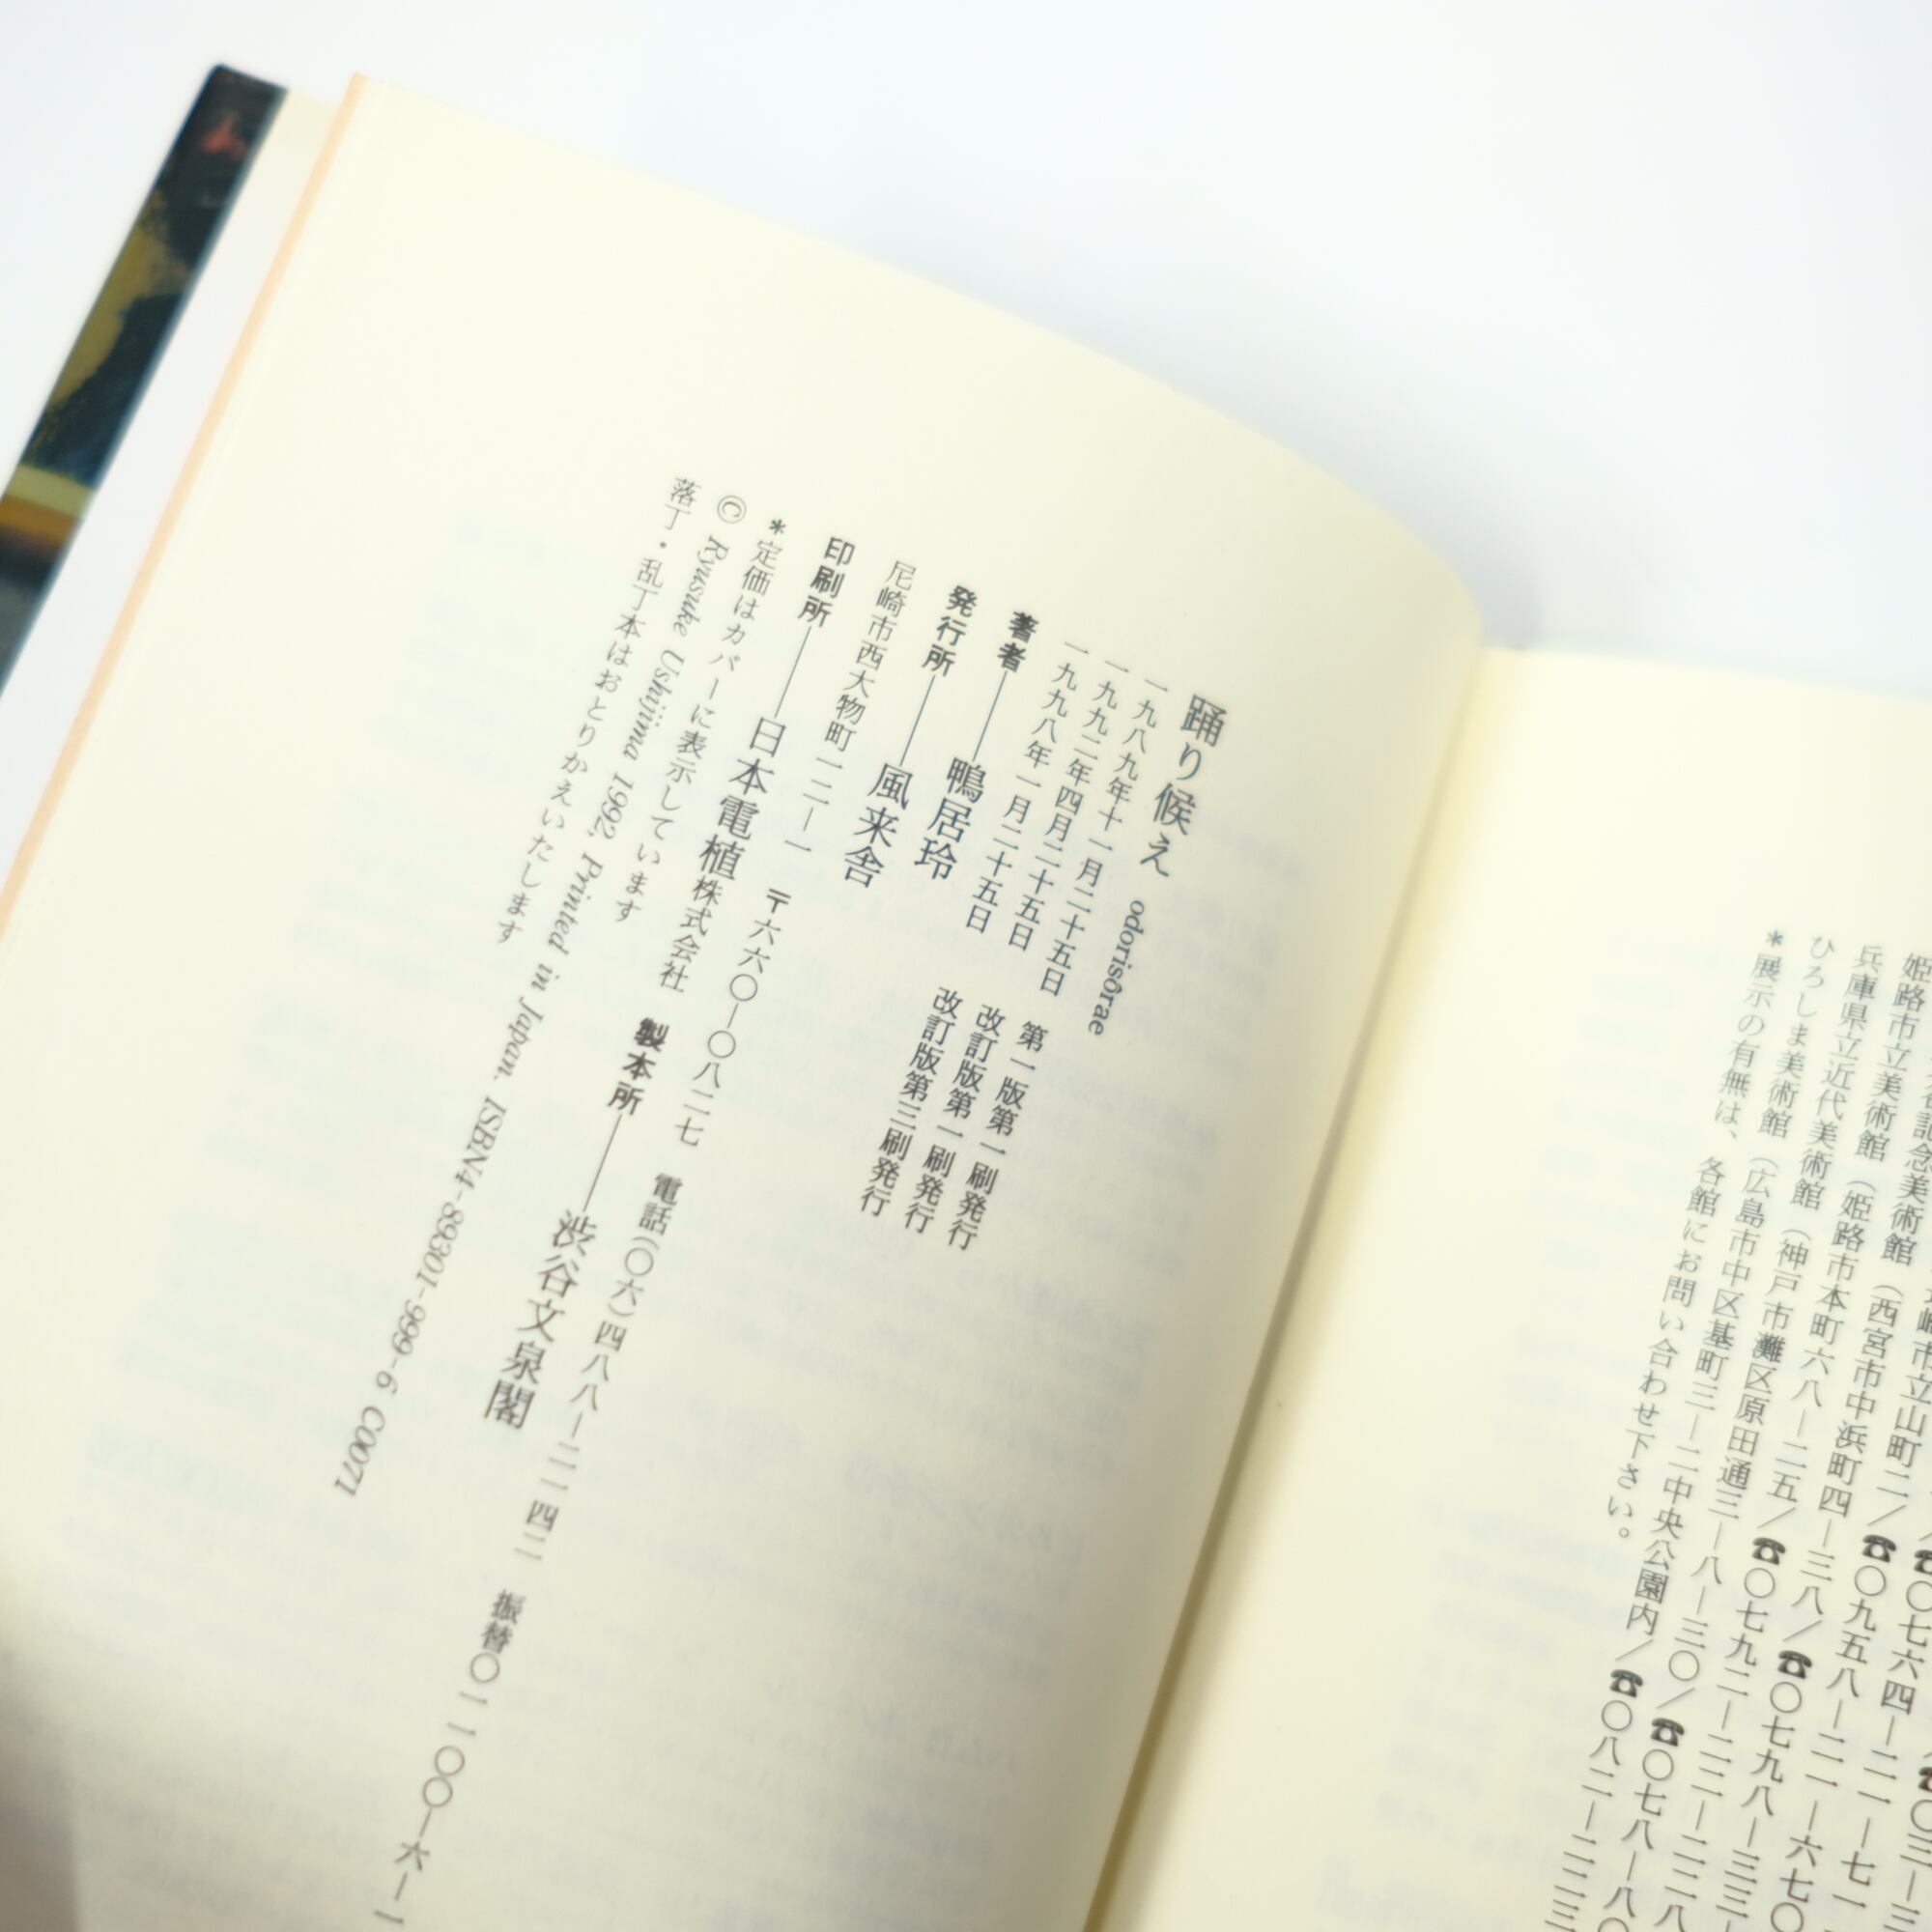 記念美術館
市立山町二／☎〇七六四―二一―七一
姫路市立美術館（西宮市中浜町四―三八／☎〇七九八―三三―
兵庫県立近代美術館（姫路市本町六八―二五／☎〇七九二―二二―二二八
ひろしま美術館（神戸市灘区原田通三―八―三〇／☎〇七八―八〇
（広島市中区基町三―二中央公園内／☎〇八二―二二三
＊展示の有無は、各館にお問い合わせ下さい。
踊り候え odorisôrae
一九八九年十一月二十五日 第一版第一刷発行
一九九二年四月二十五日 改訂版第一刷発行
一九九八年一月二十五日 改訂版第三刷発行
著者――鴨居玲
発行所――風来舎
尼崎市西大物町一二―一 〒六六〇―〇八二七 電話（〇六）四八八―二一四二 振替〇一一〇〇―六―一
印刷所――日本電植株式会社 製本所――渋谷文泉閣
＊定価はカバーに表示しています
© Ryusuke Ushijima 1992, Printed in Japan. ISBN4-89301-999-6 C0071
落丁・乱丁本はおとりかえいたします